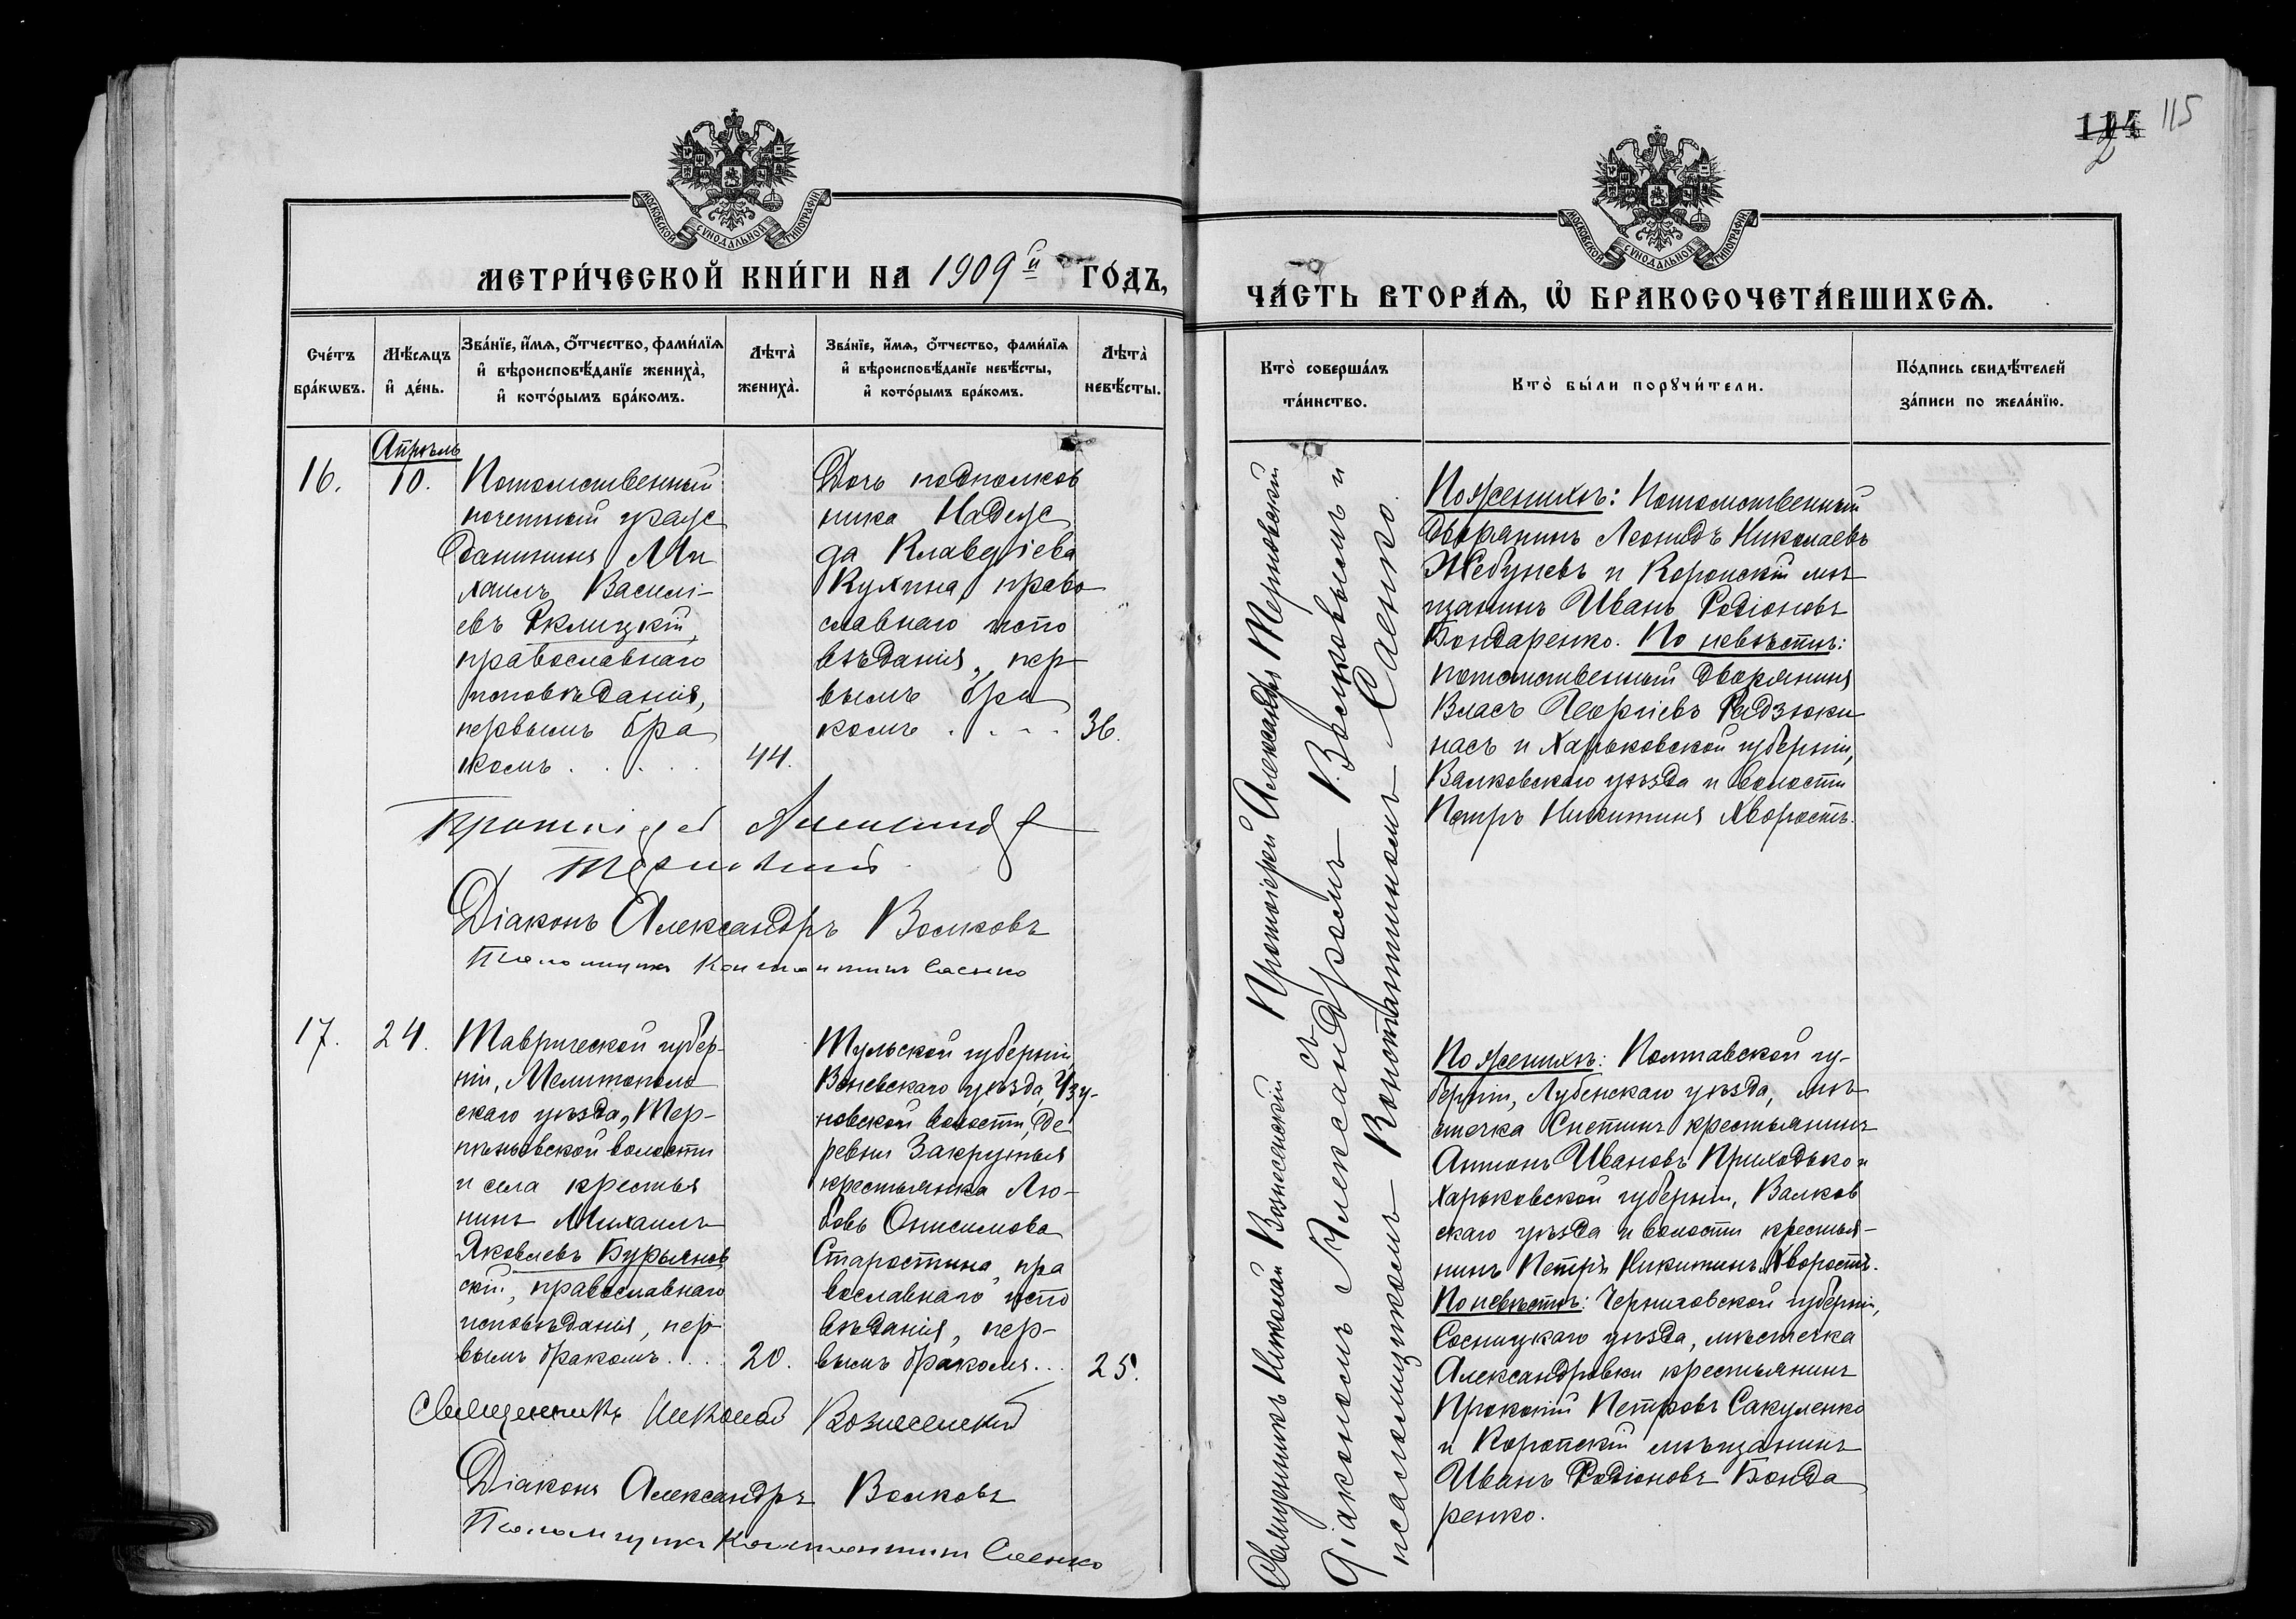 МОСКОВСКОЙ СѴНОДАЛЬНОЙ ТИПОГРАФІИ
МЕТРИ́ЧЕСКОЙ КНИ́ГИ НА 1909й ГО́ДЪ,
Сче́тъ бра́кωвъ.
Мѣ́сяцъ и҆ де́нь.
Зва́нїе, и҆́мѧ, ѻ҆́тчество, фами́лїѧ
и҆ вѣроисповѣ́данїе жениха̀,
и҆ кото́рымъ бра́комъ.
Лѣ́та̀ жениха̀.
Зва́нїе, и҆́мѧ, ѻ҆́тчество, фами́лїѧ
и҆ вѣроисповѣ́данїе невѣ́сты,
и҆ кото́рымъ бра́комъ.
Лѣ́та̀ невѣ́сты.
Апрѣль
16.
10.
Потомственный
почетный граж
данинъ Ми
хаилъ Василі-
евъ Рклицкій,
православнаго
исповѣданія,
первымъ бра
комъ . . . . .
44.
Дочь подполков
ника Надеж
да Клавдіева
Кухина, право
славнаго испо
вѣданія, пер
вымъ бра
комъ . . . .
36.
Протоіерей Александръ
Терновскій
Діаконъ Александръ Волковъ
Псаломщикъ Константинъ Саенко
17.
24.
Таврической губер-
ніи, Мелитополь
скаго уѣзда, Тер-
пѣньевской волости
и села крестья
нинъ Михаилъ
Яковлевъ Бурьянов
скій, православнаго
исповѣданія, пер
вымъ бракомъ. . .
20.
Тульской губерніи,
Веневскаго уѣзда, Узу-
новской волости, де
ревни Закрутья
крестьянка Лю-
бовь Онисимова
Старостина, пра
вославнаго испо
вѣданія, пер-
вымъ бракомъ. . .
25.
Священникъ Николай Вознесенскій
Діаконъ Александръ Волковъ
Псаломщикъ Константинъ Саенко
115
МОСКОВСКОЙ СѴНОДАЛЬНОЙ ТИПОГРАФІИ
ЧА́СТЬ ВТОРА́Ѧ, Ѽ БРАКОСОЧЕТА́ВШИХСѦ.
Кто̀ соверша́лъ
та́инство.
Кто̀ бы́ли порꙋчи́тели.
По́дпись свидѣ́телей
за́писи по жела́нїю.
Протоіерей Александръ Терновскій
Священникъ Николай Вознесенскій съ
діакономъ Александромъ Волковымъ и
псаломщикомъ Константиномъ Саенко.
По женихѣ: Потомственный
дворянинъ Леонидъ Николаевъ
Жебуневъ и Коропскій мѣ
щанинъ Иванъ Родіоновъ
Бондаренко. По невѣстѣ:
потомственный дворянинъ
Власъ Георгіевъ Радзюки
насъ и Харьковской губерніи,
Валковскаго уѣзда и волости
Петръ Никитинъ Хворостъ.
По женихѣ: Полтавской гу-
берніи, Лубенскаго уѣзда, мѣ
стечка Снетинъ крестьянинъ
Антонъ Ивановъ Приходько и
Харьковской губерніи, Валков
скаго уѣзда и волости крестья-
нинъ Петръ Никитинъ Хворостъ.
По невѣстѣ: Черниговской губерніи,
Сосницкаго уѣзда, мѣстечка
Александровки крестьянинъ
Прокопій Петровъ Сакуленко
и Коропскій мѣщанинъ
Иванъ Родіоновъ Бонда
ренко.